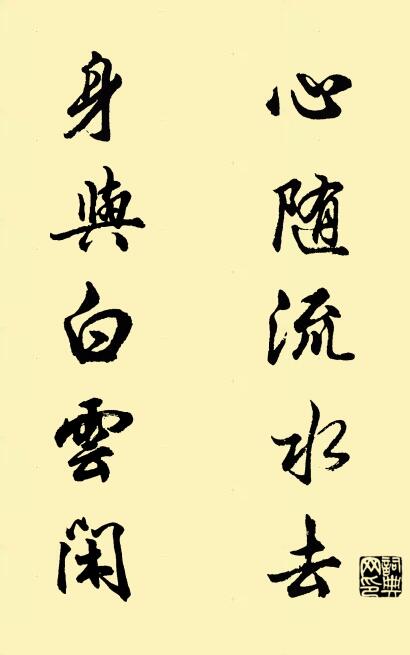 心随流水去
身與白雲閑
詞典
网印